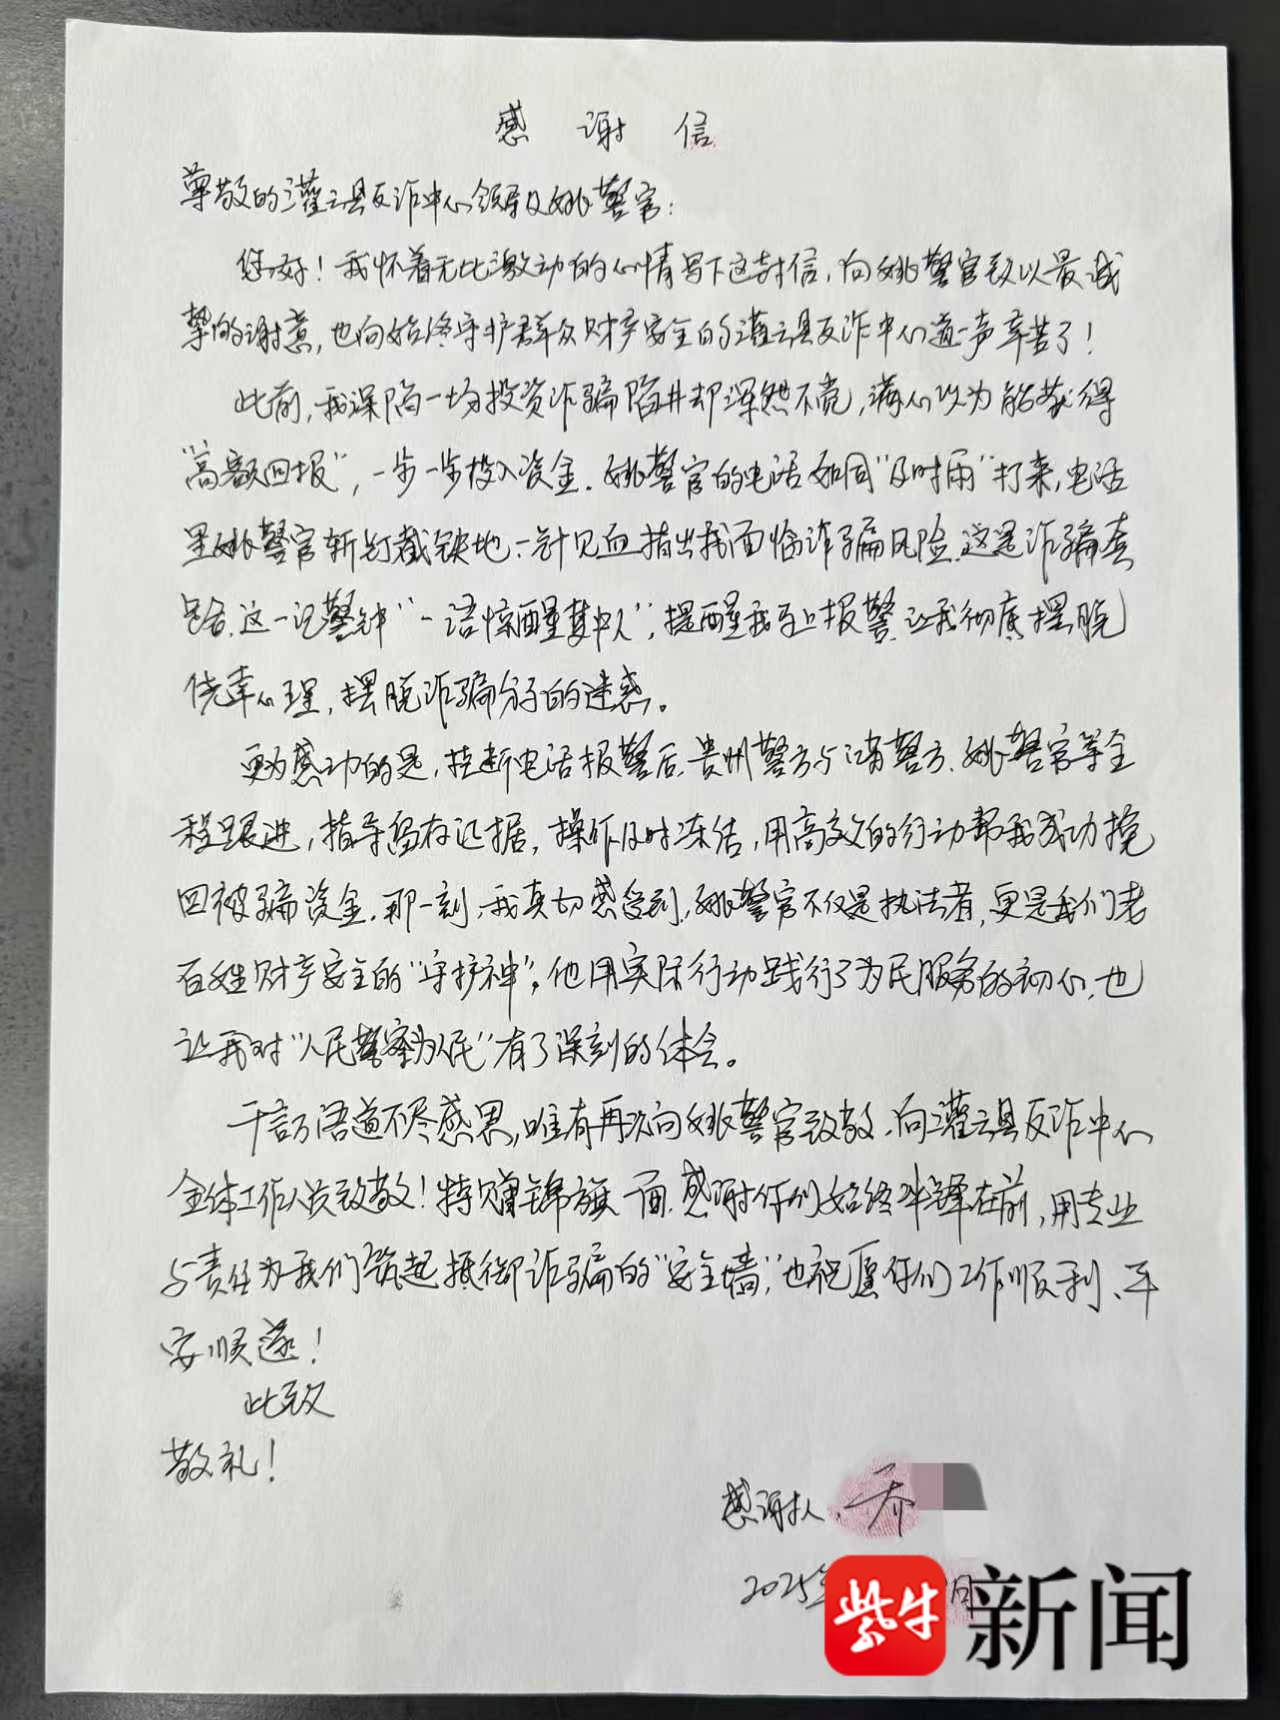 感谢信
尊敬的灌云县反诈中心领导及姚警官：
您好！我怀着无比激动的心情写下这封信，向姚警官致以最诚
挚的谢意，也向始终守护群众财产安全的灌云县反诈中心道一声辛苦了！
此前，我深陷一场投资诈骗陷井却浑然不觉，满心以为能获得
“高额回报”，一步一步投入资金.姚警官的电话如同“及时雨”打来，电话
里姚警官斩钉截铁地、一针见血指出我面临诈骗风险.这是诈骗套
路.这一记警钟“一语惊醒梦中人”，提醒我马上报警.让我彻底摆脱
侥幸心理，摆脱诈骗分子的迷惑。
更为感动的是，挂断电话报警后.贵州警方与江苏警方.姚警官等全
程跟进，指导留存证据，操作及时冻结，用高效的行动帮我成功挽
回被骗资金.那一刻，我真切感受到，姚警官不仅是执法者，更是我们老
百姓财产安全的“守护神”。他用实际行动践行了为民服务的初心，也
让我对“人民警察为人民”有了深刻的体会。
千言万语道不尽感恩，唯有再次向姚警官致敬.向灌云县反诈中心
全体工作人员致敬！特赠锦旗一面.感谢你们始终冲锋在前，用专业
与责任为我们筑起抵御诈骗的“安全墙”，也祝愿你们工作顺利、平
安顺遂！
此致
敬礼！
感谢人：乔
2025年
紫牛新闻